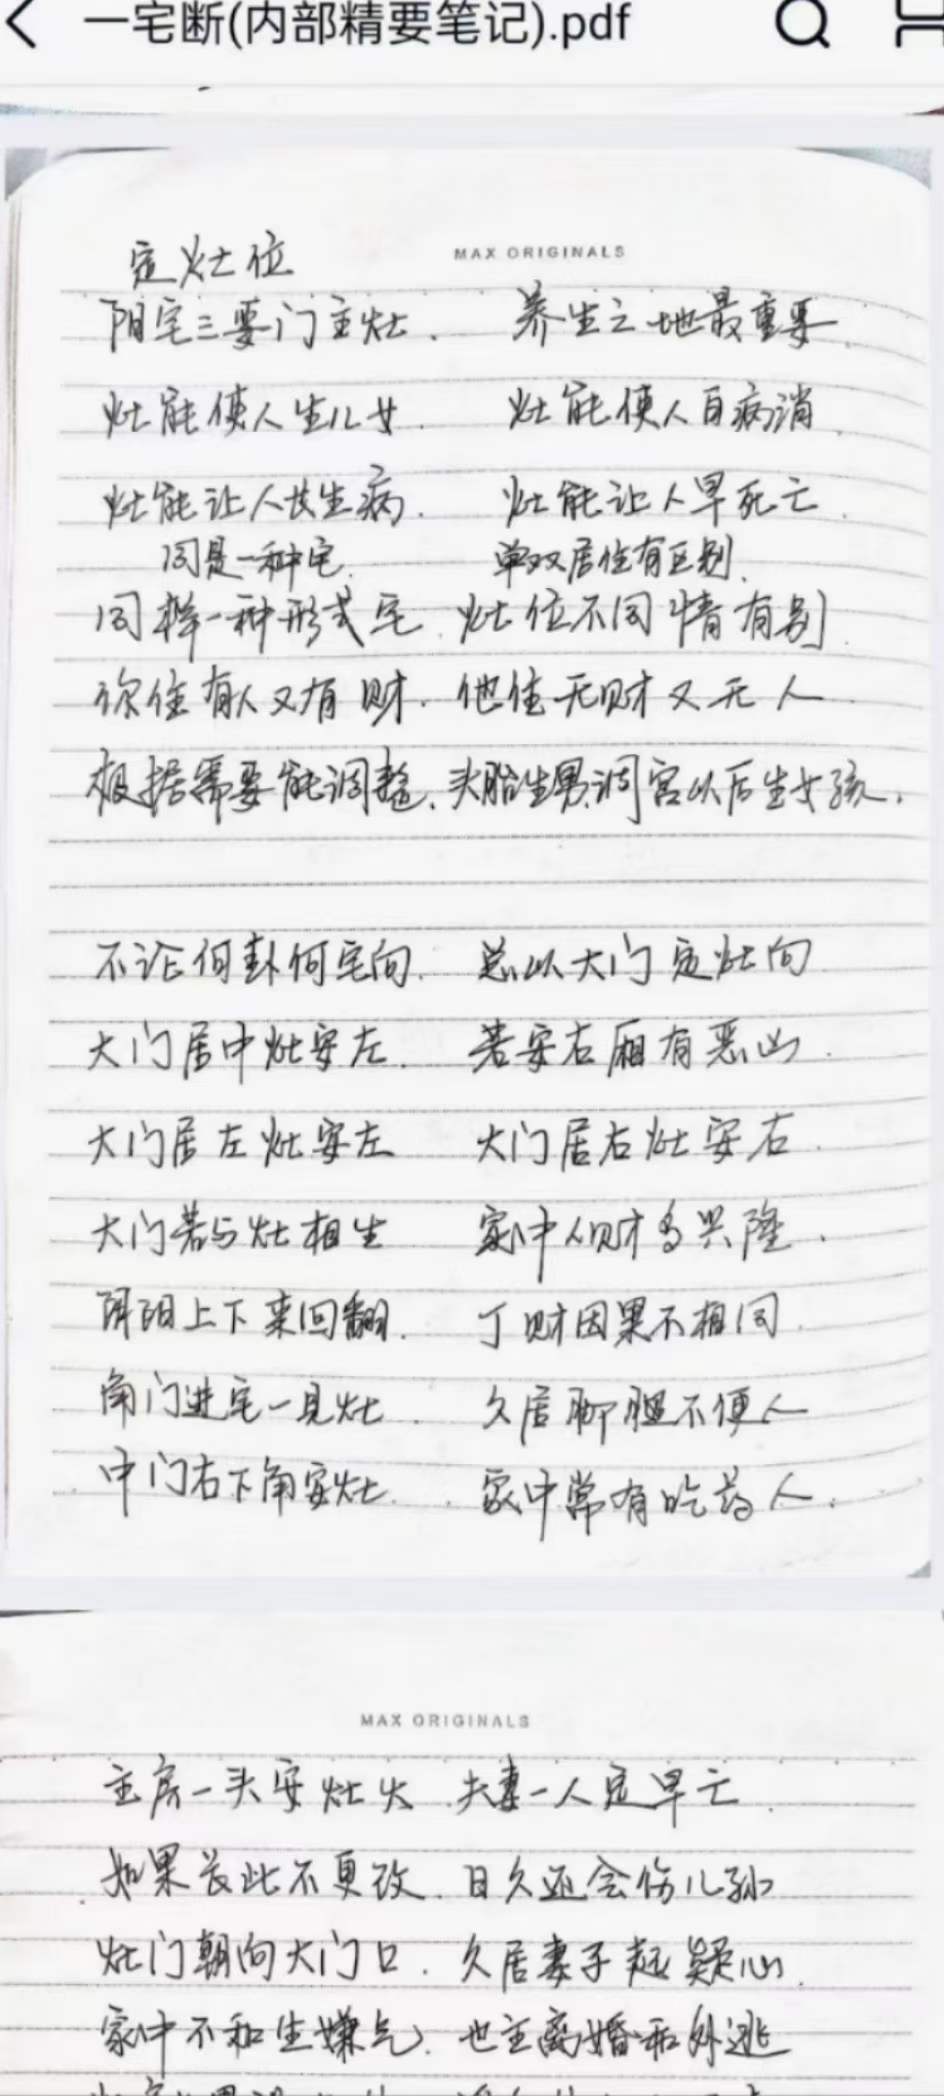 一宅断(内部精要笔记).pdf
定灶位
MAX ORIGINALS
阳宅三要门主灶. 养生之地最重要.
灶能使人生儿女. 灶能使人百病消.
灶能让人生病. 灶能让人早死亡.
同是一种宅. 单双居住有区别.
同样一种形式宅. 灶位不同情有别.
你住有人又有财. 他住无财又无人
根据需要能调整. 头胎生男调宫以后生女孩.
不论何卦何宅向. 总以大门定灶向
大门居中灶安左. 若安右厢有恶凶.
大门居左灶安左 大门居右灶安右.
大门若与灶相生 家中人财多兴隆.
阴阳上下来回翻. 丁财因果不相同.
角门进宅一见灶. 久居脚腿不便人
中门右下角安灶. 家中常有吃药人.
MAX ORIGINALS
主房一头安灶火. 夫妻一人定早亡.
如果长此不更改. 日久还会伤儿孙
灶门朝向大门口. 久居妻子起疑心.
家中不和生嫌气. 也主离婚和外逃